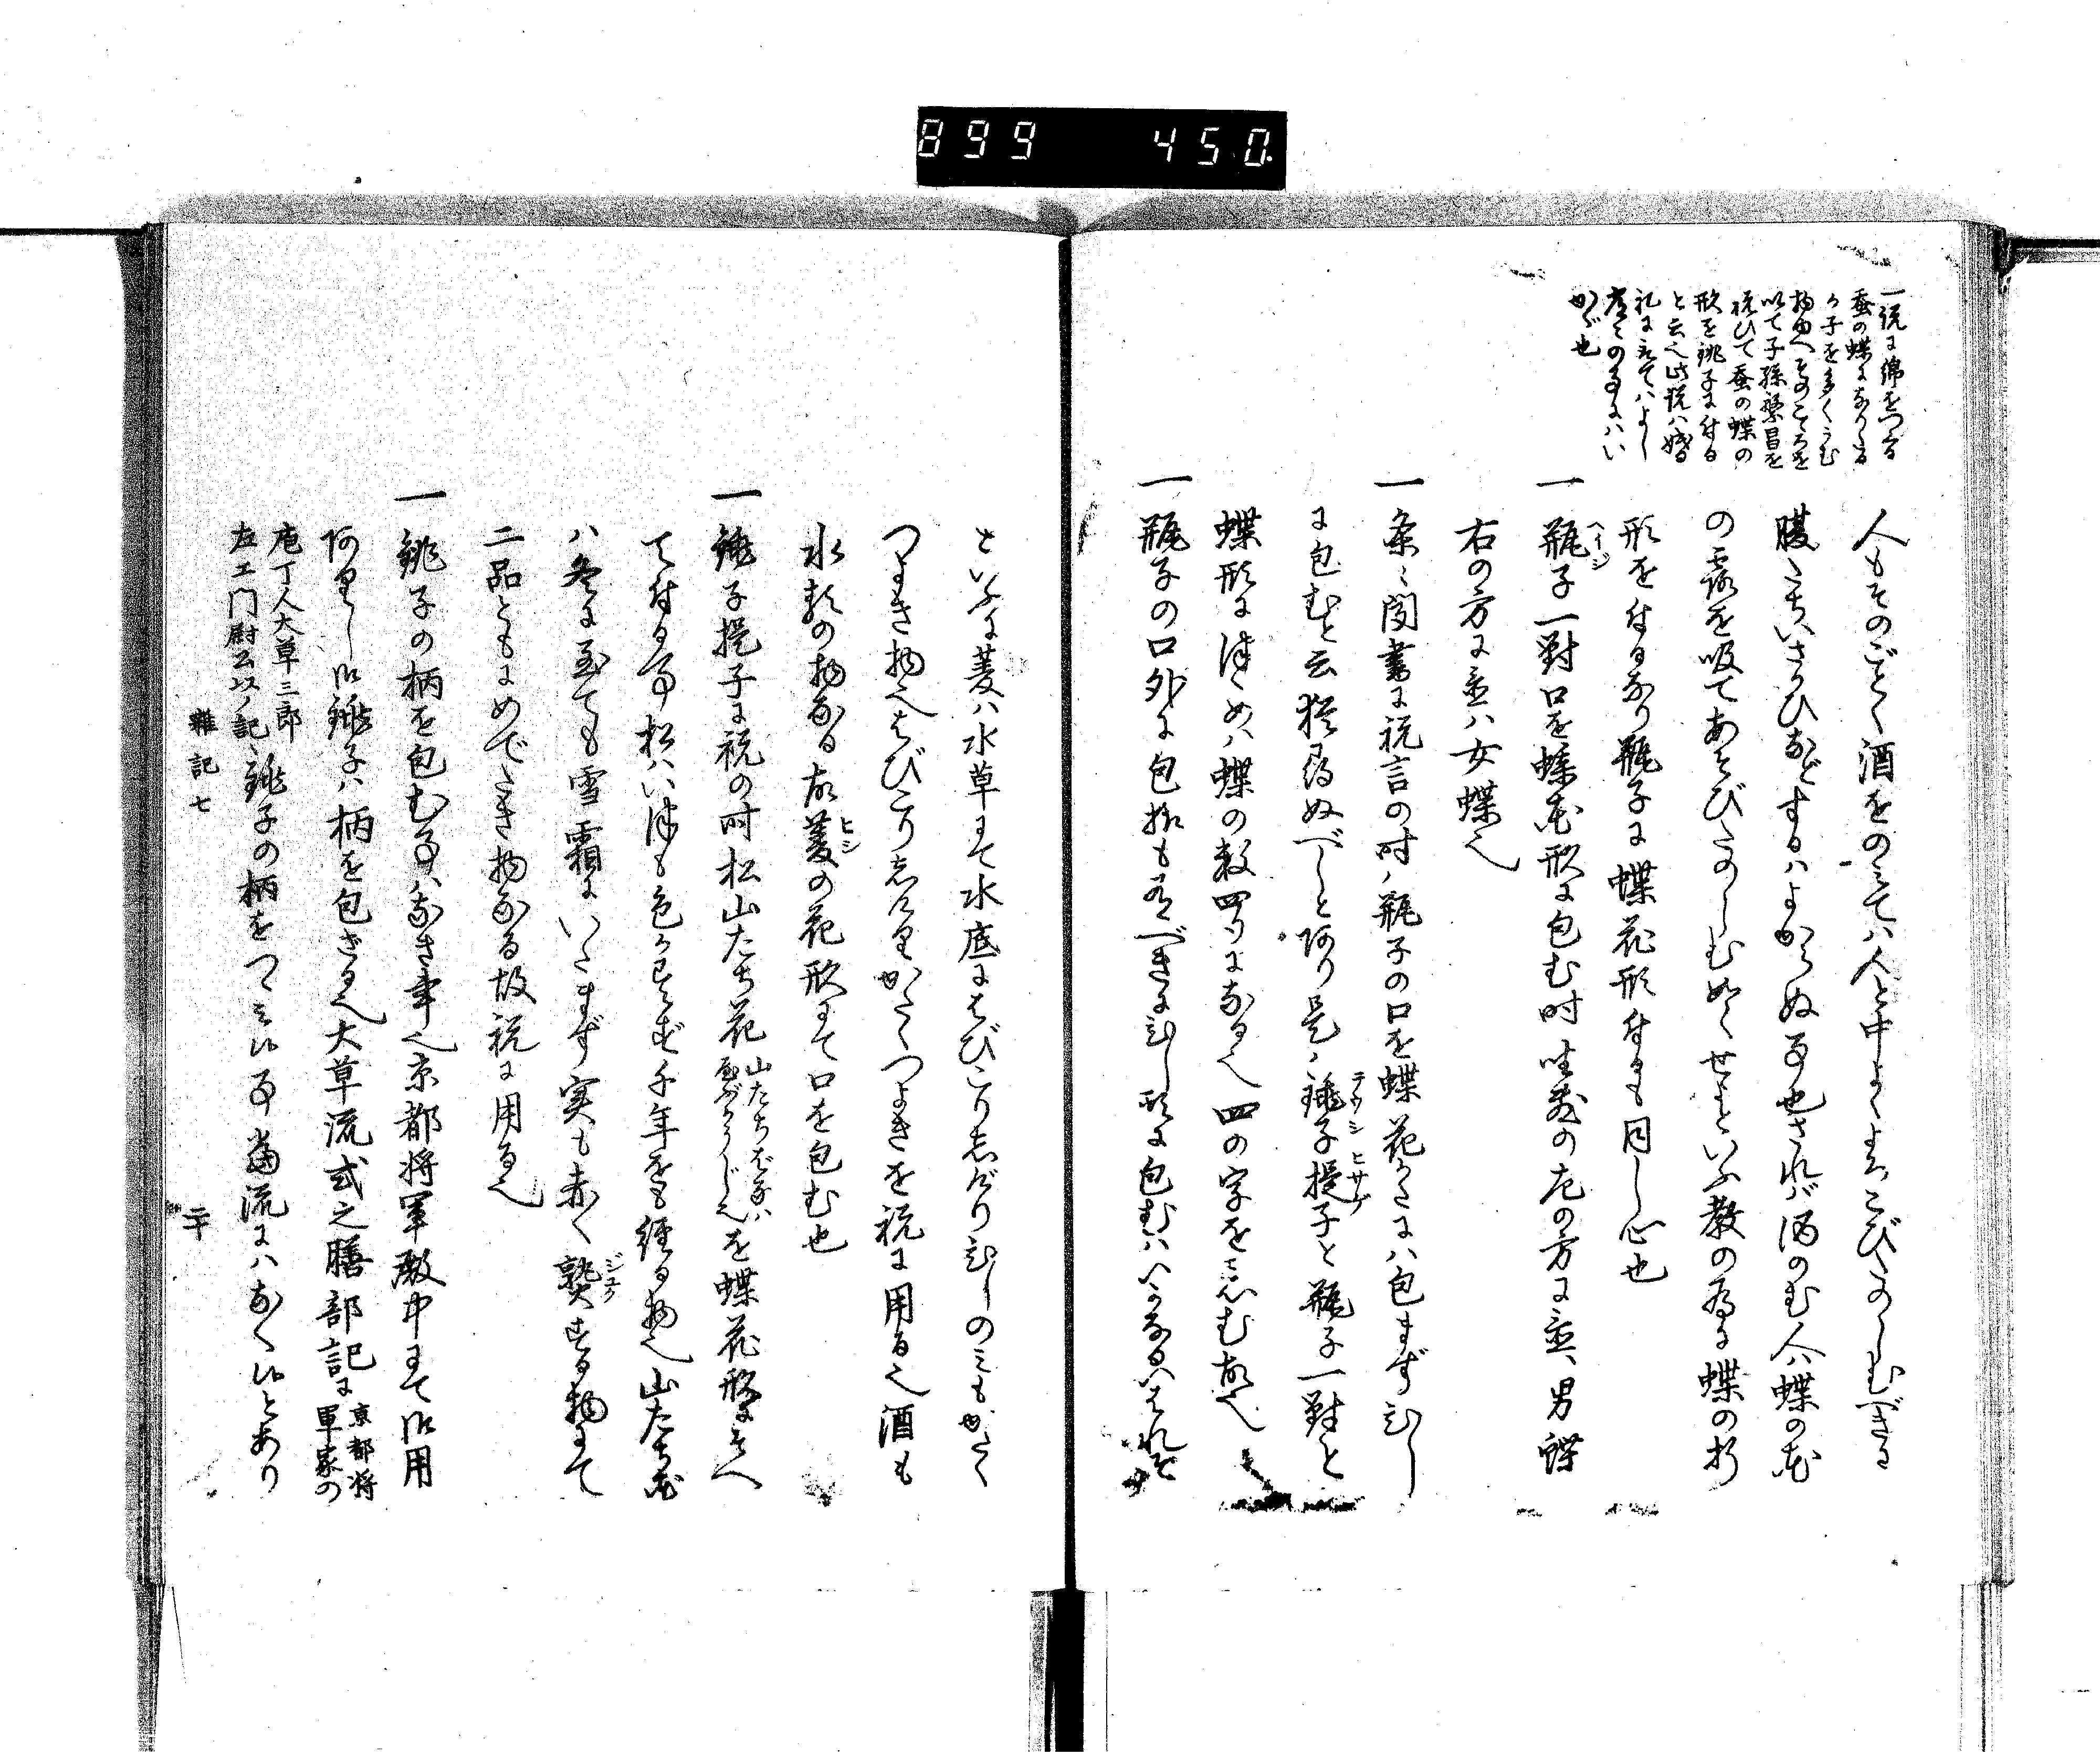 899 450
一説に綿をつくる
蚕の蝶になりたる
が子を多くうむ
物ゆへそのこころを
以て子孫繁昌を
祝ひて蚕の蝶の
形を銚子に付る
と云へ此説は婚
礼に言てはよし
常々の事にはい
かゞ也
人もそのごとく酒をのみては人と中よくよろこびたのしむべきを
腹たちいさかひなどするはよからぬ事也されば酒のむ人は蝶の花
の露を吸てあそびたのしむ如くせよといふ教の為に蝶の形
形を付るなり瓶子に蝶花形付るも同し心也
一瓶子一對口を蝶花形に包む時座敷の左の方に立は男蝶
右の方に立は女蝶也
一条々聞書に祝言の時ハ瓶子の口を蝶花かたには包まずひし
に包むと云様尋ぬべしとあり是ハ銚子提子と瓶子一對と
蝶形に包めは蝶の数四ツになる也四の字をいむ故也
一瓶子の口外に包様も有べきにひし形に包むはいかなるいはれぞ
といふに菱は水草にて水底にはびこりしげりひしのみもかたく
つよき物也はびこりしげりかたくつよきを祝に用る也酒も
水類の物なる故菱の花形にて口を包む也
一銚子提子に祝の時松山たち花
山たちばなハ
藪かうじ也
を蝶花形にそへ
て付る事松はいつも色かはらず千年をも経る物也山たち花
ハ冬に至ても雪霜にいたまず実も赤く熟する物にて
二品ともにめでたき物なる故祝に用る也
一銚子の柄を包む事ハなき事也京都将軍殿中にて御用
ありし御銚子ハ柄を包ざる也大草流式之膳部記に
京都将
軍家の
庖丁人大草三郎
左エ門尉公以ノ記
銚子の柄をつゝみ候事當流にハなく候とあり
雑記七
二十